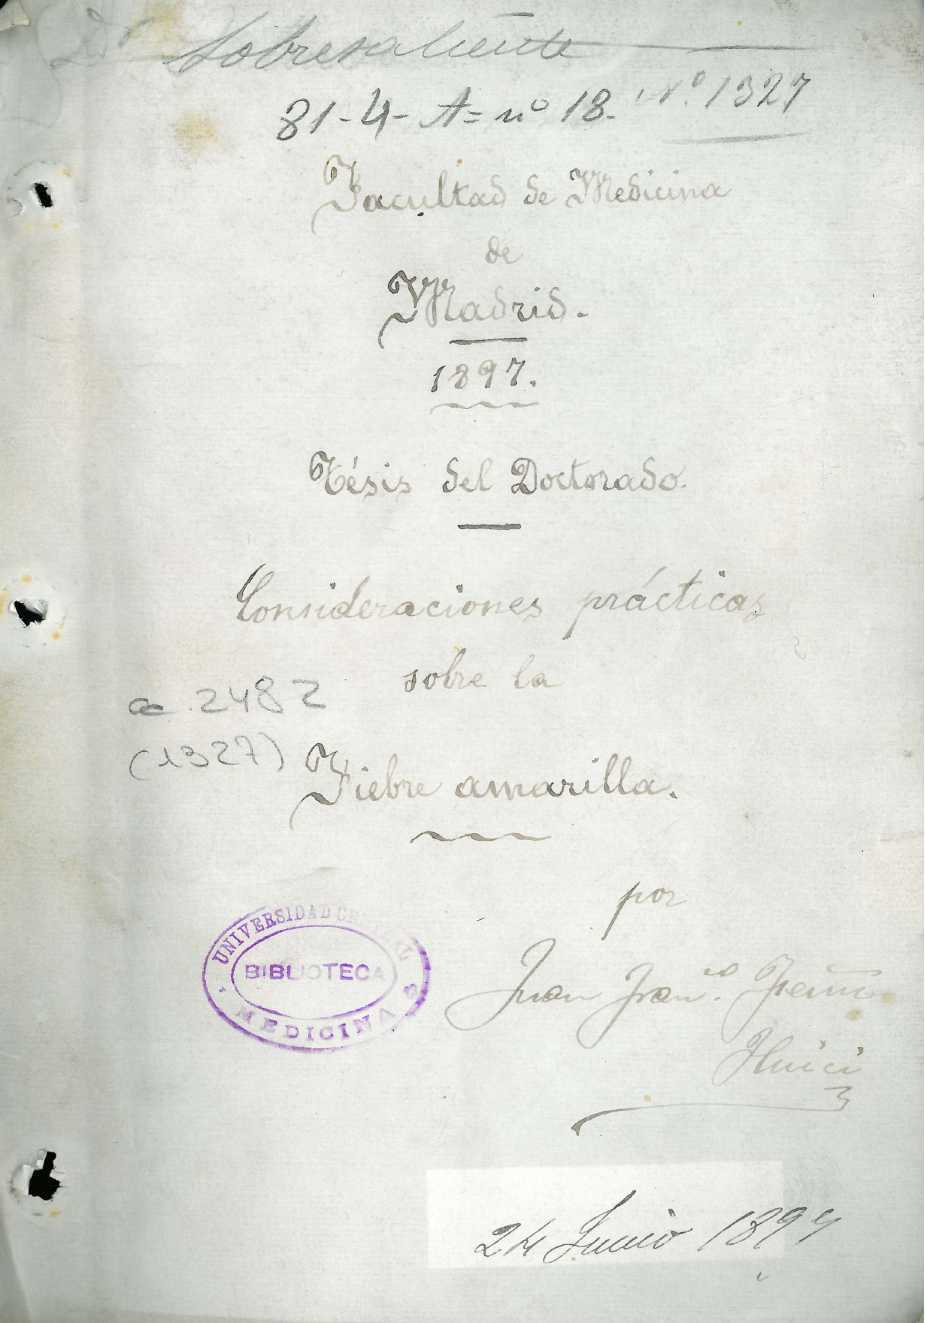 Sobresaliente
81-4-A= nº 18. Nº. 1327
Facultad de Medicina
de
Madrid.
1897.
Tésis del Doctorado.
Consideraciones prácticas
sobre la
ca 2482
(1327)
Fiebre amarilla.
por
UNIVERSIDAD
BIBLIOTECA
MEDICINA
Juan Franco.
Huici
24 Junio 1897